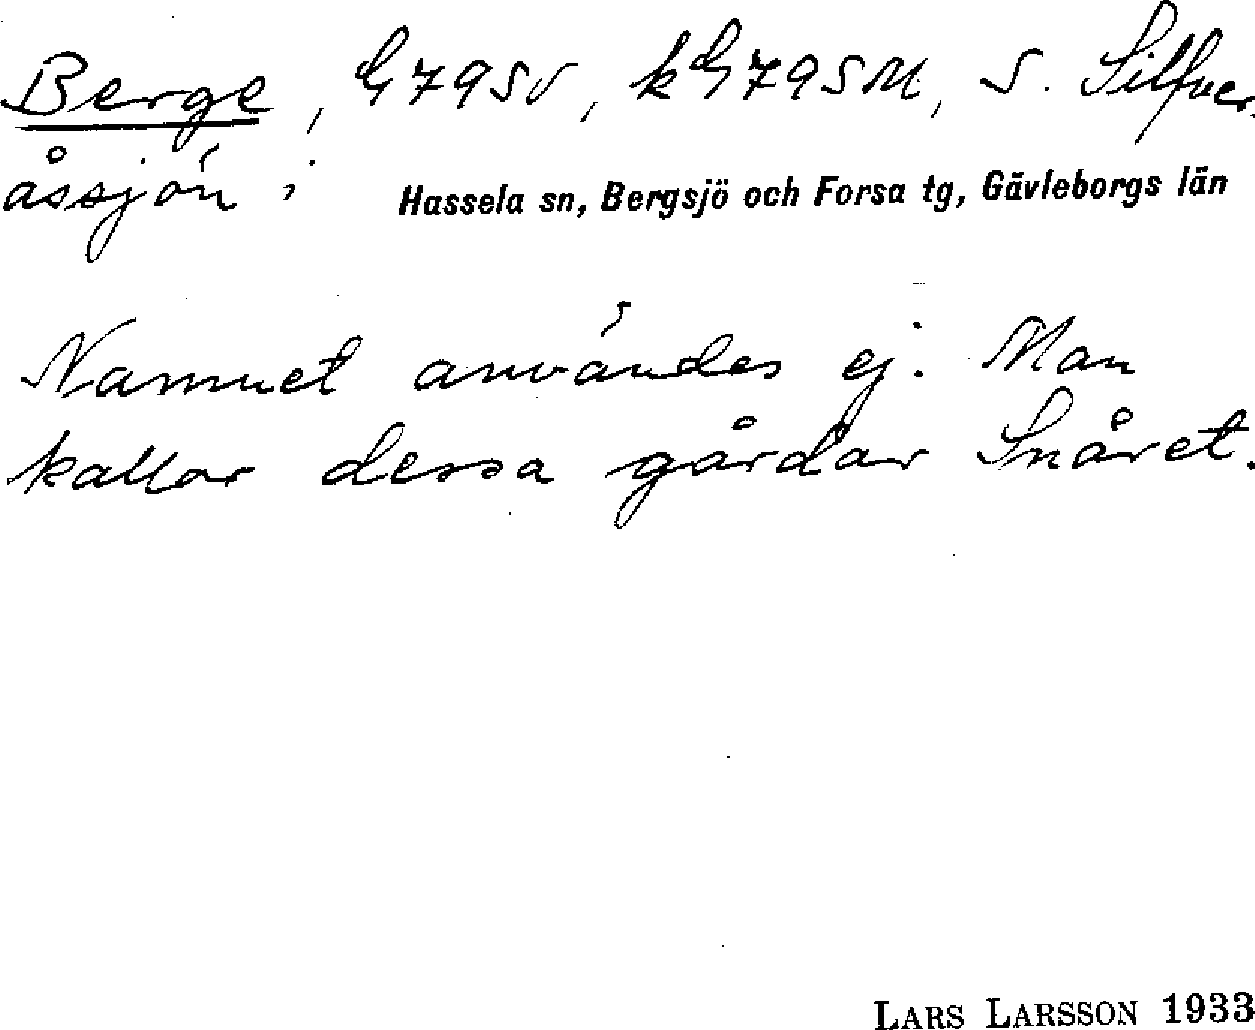 Berge, G79SV, kG79SM, S. Silfver-
åssjön i Hassela sn, Bergsjö och Forsa tg, Gävleborgs län
Namnet användes ej. Man
kallar dessa gårdar Snåret.
LARS LARSSON 1933